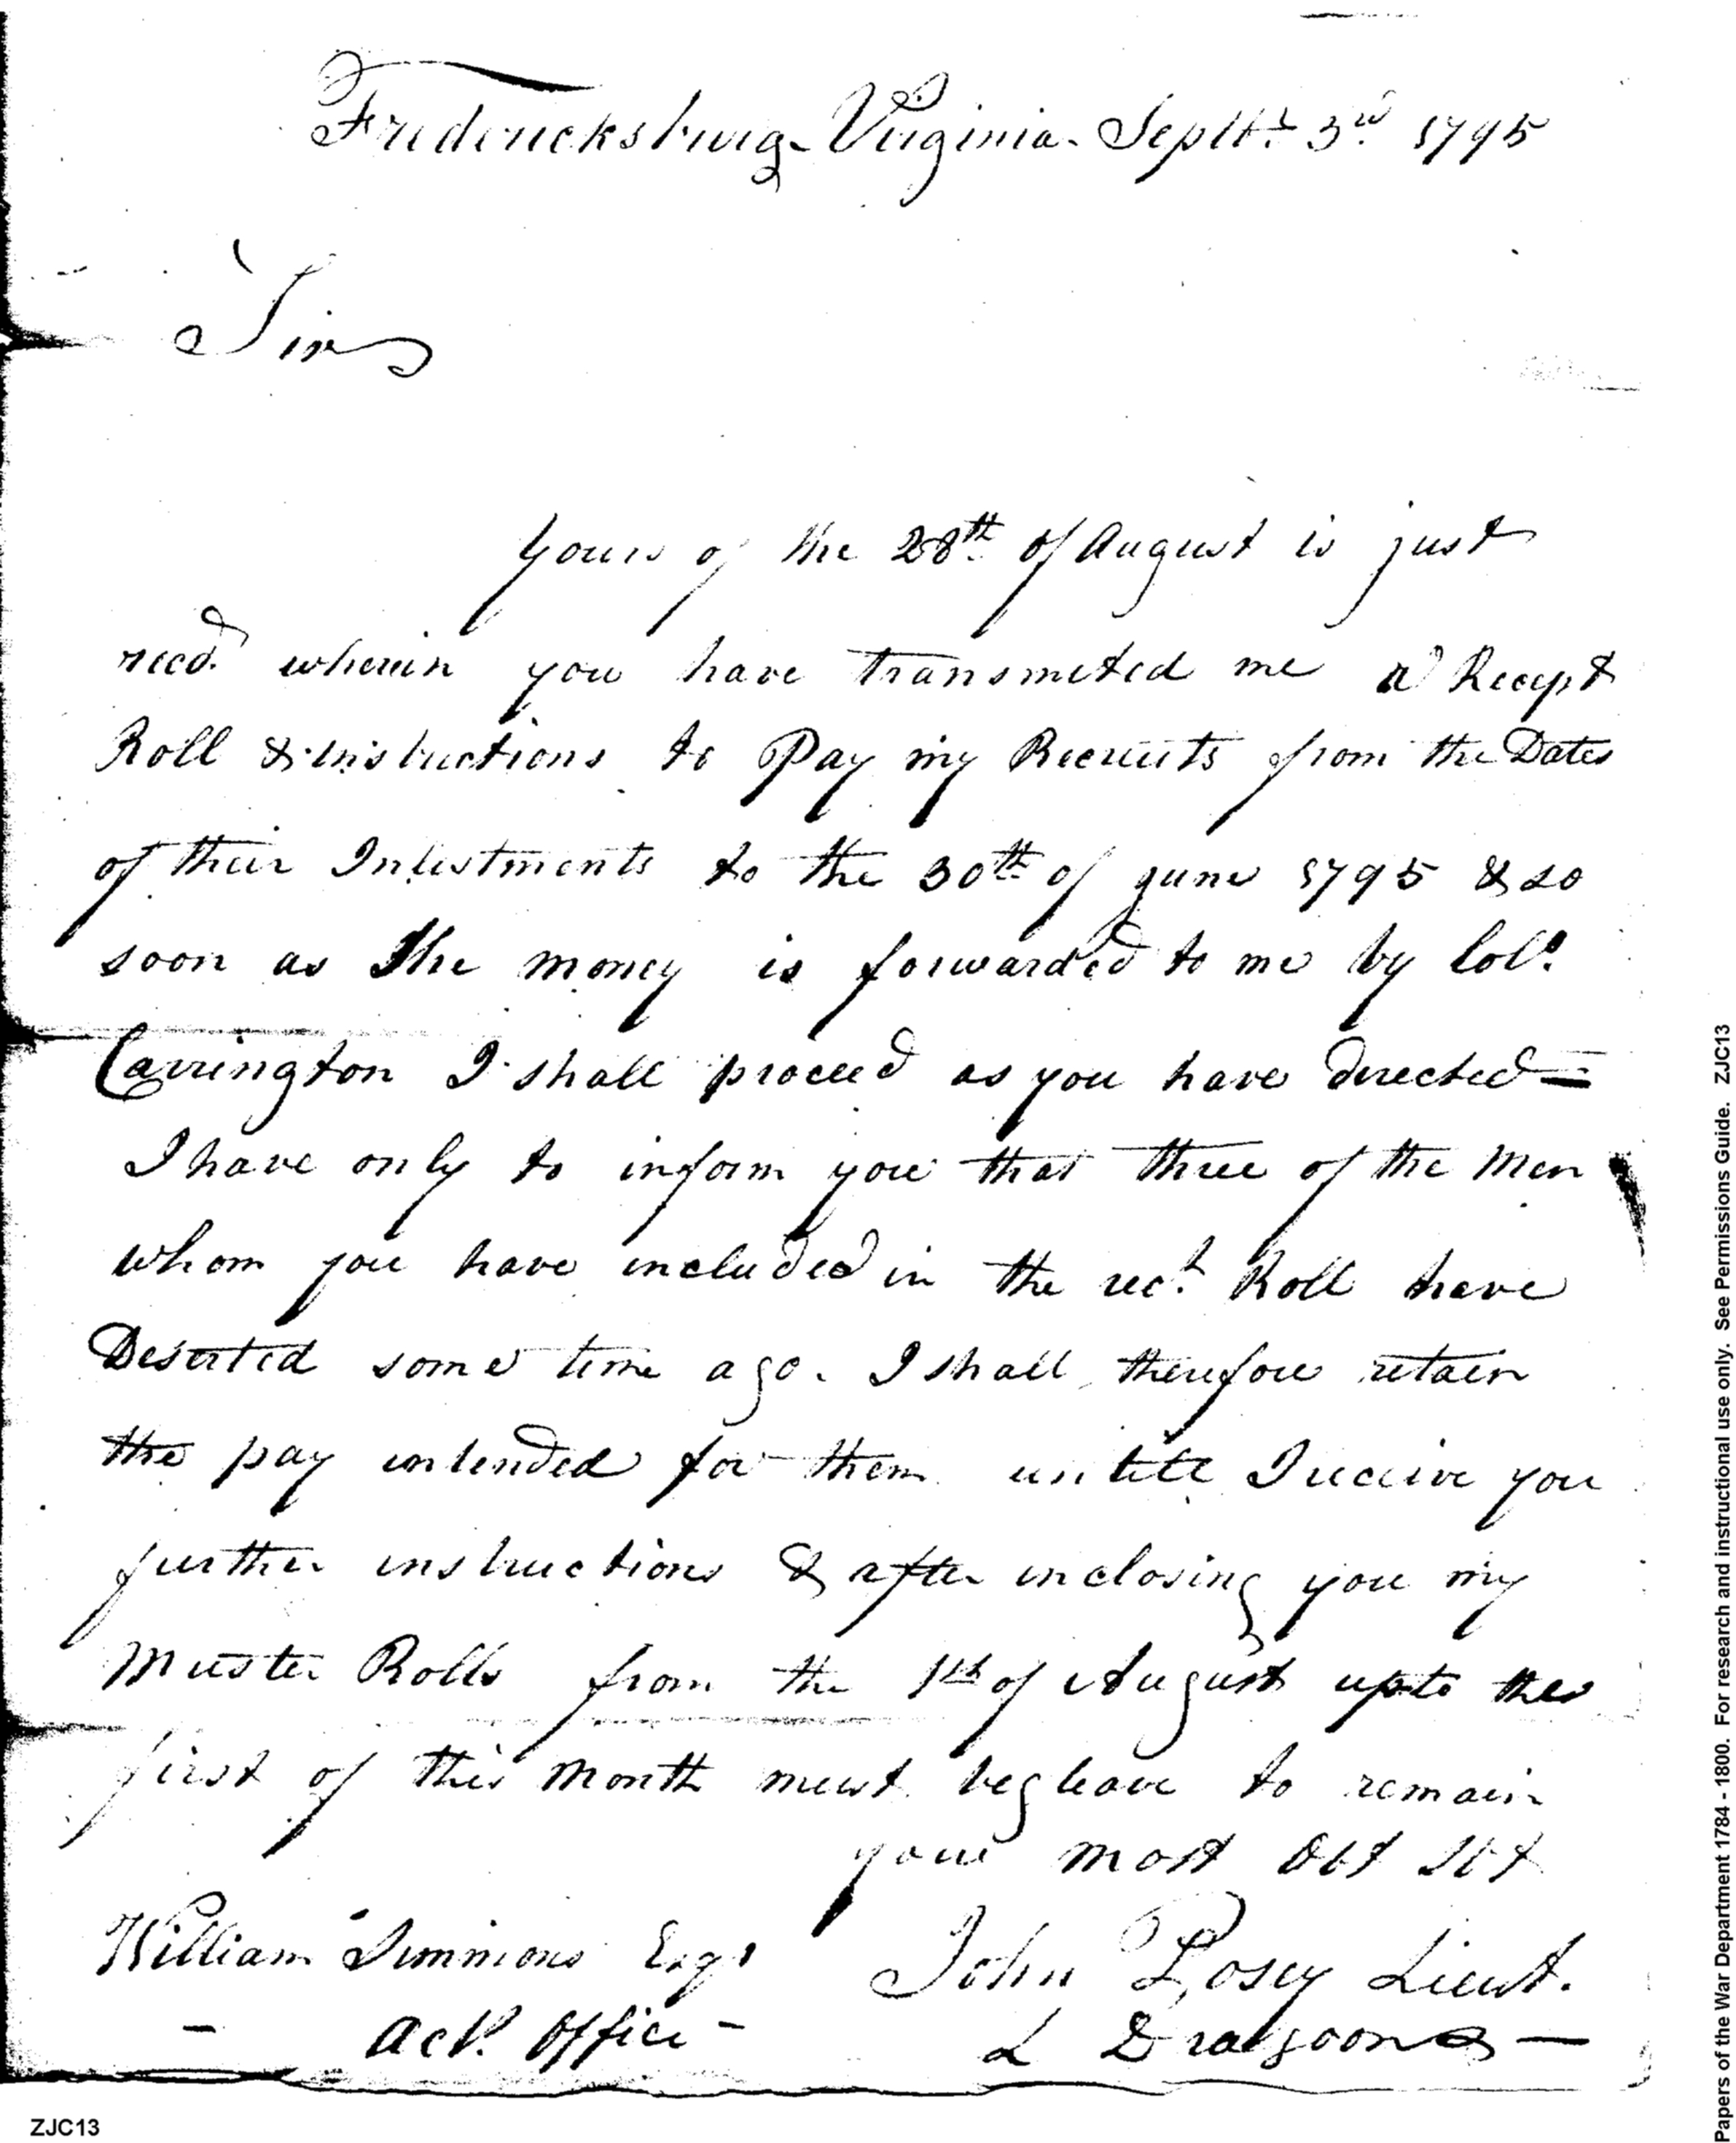 Fredericksburg Virginia Septbr. 3rd 1795
Sir
Yours of the 28th of August is just
recd. wherein you have transmeted me a Recept
Roll & instructions to Pay my Recruits from the Dates
of their Inlistments to the 30th of June 1795 & so
soon as the money is forwarded to me by Colo.
Carrington I shall proceed as you have directed =
I have only to inform you that three of the Men
whom you have included in the rect. Roll have
Deserted some time ago. I shall therefore retain
the pay intended for them untill I receive you
further instructions & after inclosing you my
Muster Rolls from the 1st of August upto the
first of this Month must beg leave to remain
your most Obt Sbt
William Simmons Esqr
John Posey Lieut.
- Act. Office -
L Dragoons —
ZJC13
Papers of the War Department 1784 - 1800. For research and instructional use only. See Permissions Guide. ZJC13